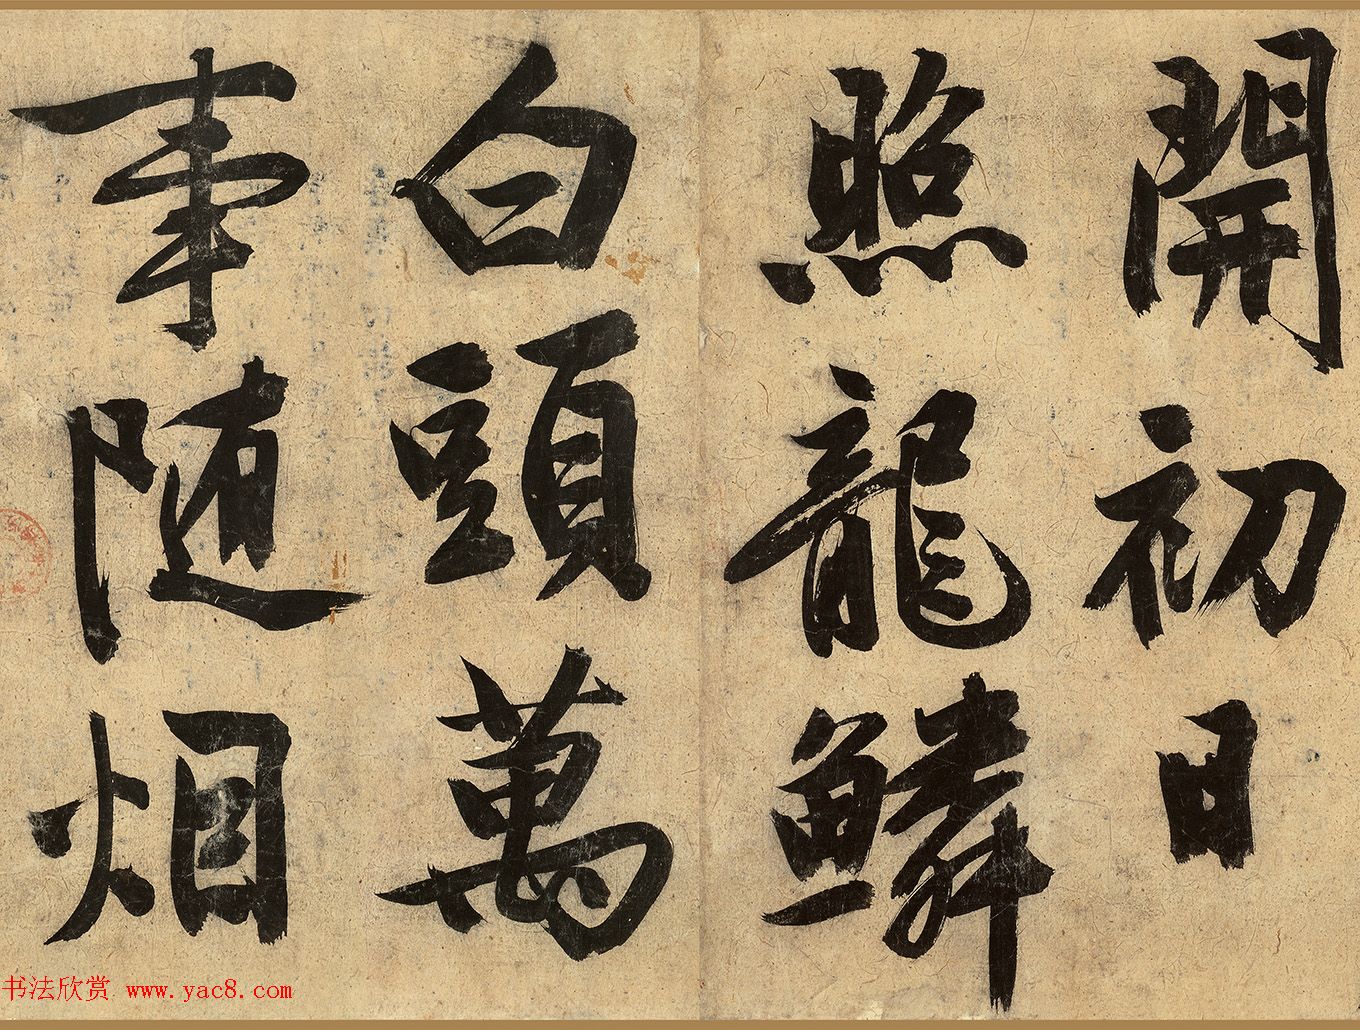 開初日
照龍鱗
白頭萬
事随烟
书法欣赏 www.yac8.com